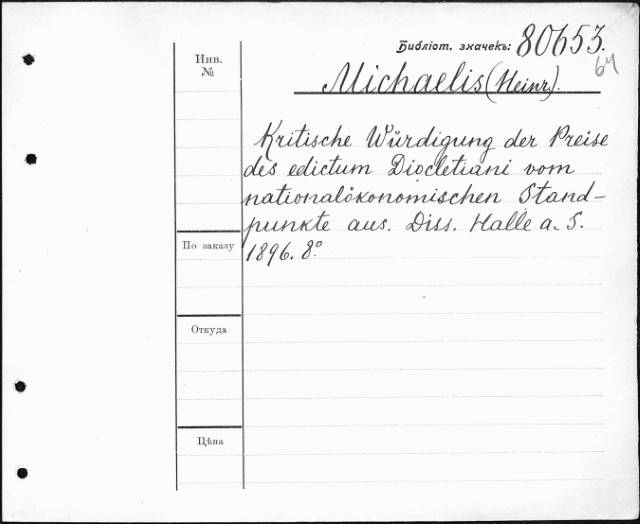 Библіот. значекъ: 80653.
64
Инв.
№
Michaelis (Heinr.).
Kritische Würdigung der Preise
des edictum Diocletiani vom
nationalökonomischen Stand-
punkte aus. Diss. Halle a. S.
1896. 8°.
По заказу
Откуда
Цѣна